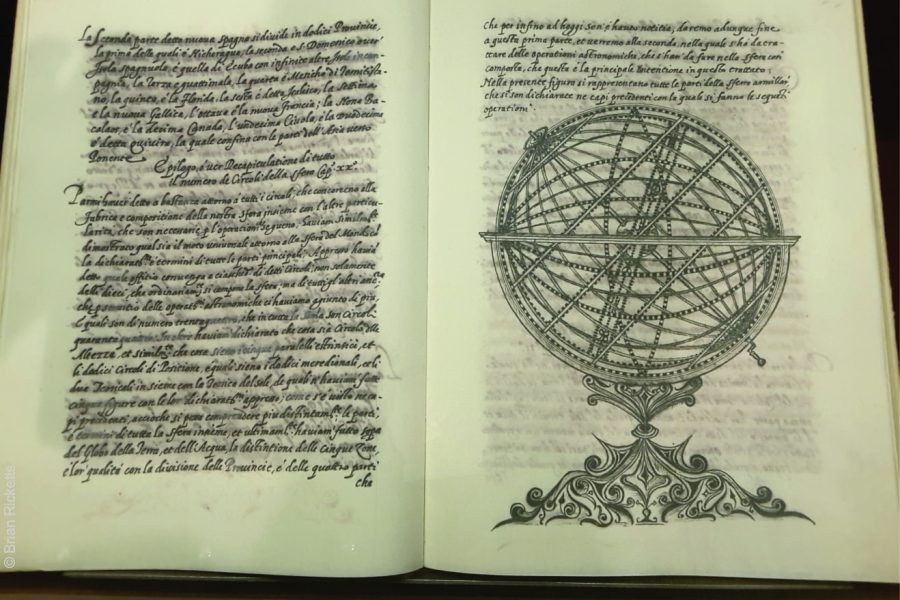 La Seconda parte della nuova spagna si divide in dodici Provincie,
la prima delle quali è Nicheragua, la seconda e S. Domenico over'
Isola spagnuola, è quella di Ecuba con infinite altre Isole
la Terza e la quarta è
no, la quinta, è la Florida, la sesta è detta la settima
e la nuova Gallica, l'ottava è la nuova Francia; la Nona Ba=
calaos, è la decima Canada, l'undecima Civola, è la Duodecima
è detta Quivira, la quale confina con le parti dell' Asia verso
Ponente
Epilogo, o ver Recapitulatione di tutto
il numero de Circoli della sfera Cap. xxo.
Parmi haver detto a bastanza attorno a tutti i circoli, che concorreno alla
fabrica e compositione della nostra sfera insieme con l'altre partico=
larità, che son necessarie, per l'operationi segueno,
dimostrato qual sia il moto universale attorno alla sfera del Mondo, co'
la e termini di tutte le parti principali; Appresso
detto quale offitio convenga a ciascun di detti Circoli, non solamente
delle dieci, che ordinariam. si compone la sfera, ma di tutti gl'altri
che per servitio delle astronomiche ci haviamo agiunto di piu,
li quali son di numero trentaquattro, che in tutta la son Circoli;
quaranta quattro. In oltre haviam dichiarato che cosa sia Circolo
Altezza, et che cosa sieno i cinque paralelli estrinsici, et
li dodici Circoli di Positione, e quali sieno i dodici meredionali, et li
due insieme con la del sole, de quali n' haviam fatte
cinque figure con le lor appresso; come s'è visto ne ca=
pi precedenti, accioche si possa comprendere piu le parti,
e termini di tutta la sfera insieme, et haviam fatto
del Globo della Terra, et dell'Acqua, la distintione delle Cinque Zone,
e lor qualità con la divisione delle Provincie, é delle quattro parti
che
che per infino ad hoggi son' è hauto notitia, daremo adunque fine
a questa prima parte, et verremo alla seconda, nella quale s'ha da tra=
ttare delle operationi astronomiche, che s'han' da fare nella sfera
composta, che questa è la principale intentione in questo trattato;
Nella presente figura si rappresentano tutte le parti della sfera armillar'
che si son dichiarate ne capi precedenti con la quale si fanno le
operationi.
© Brian Ricketts